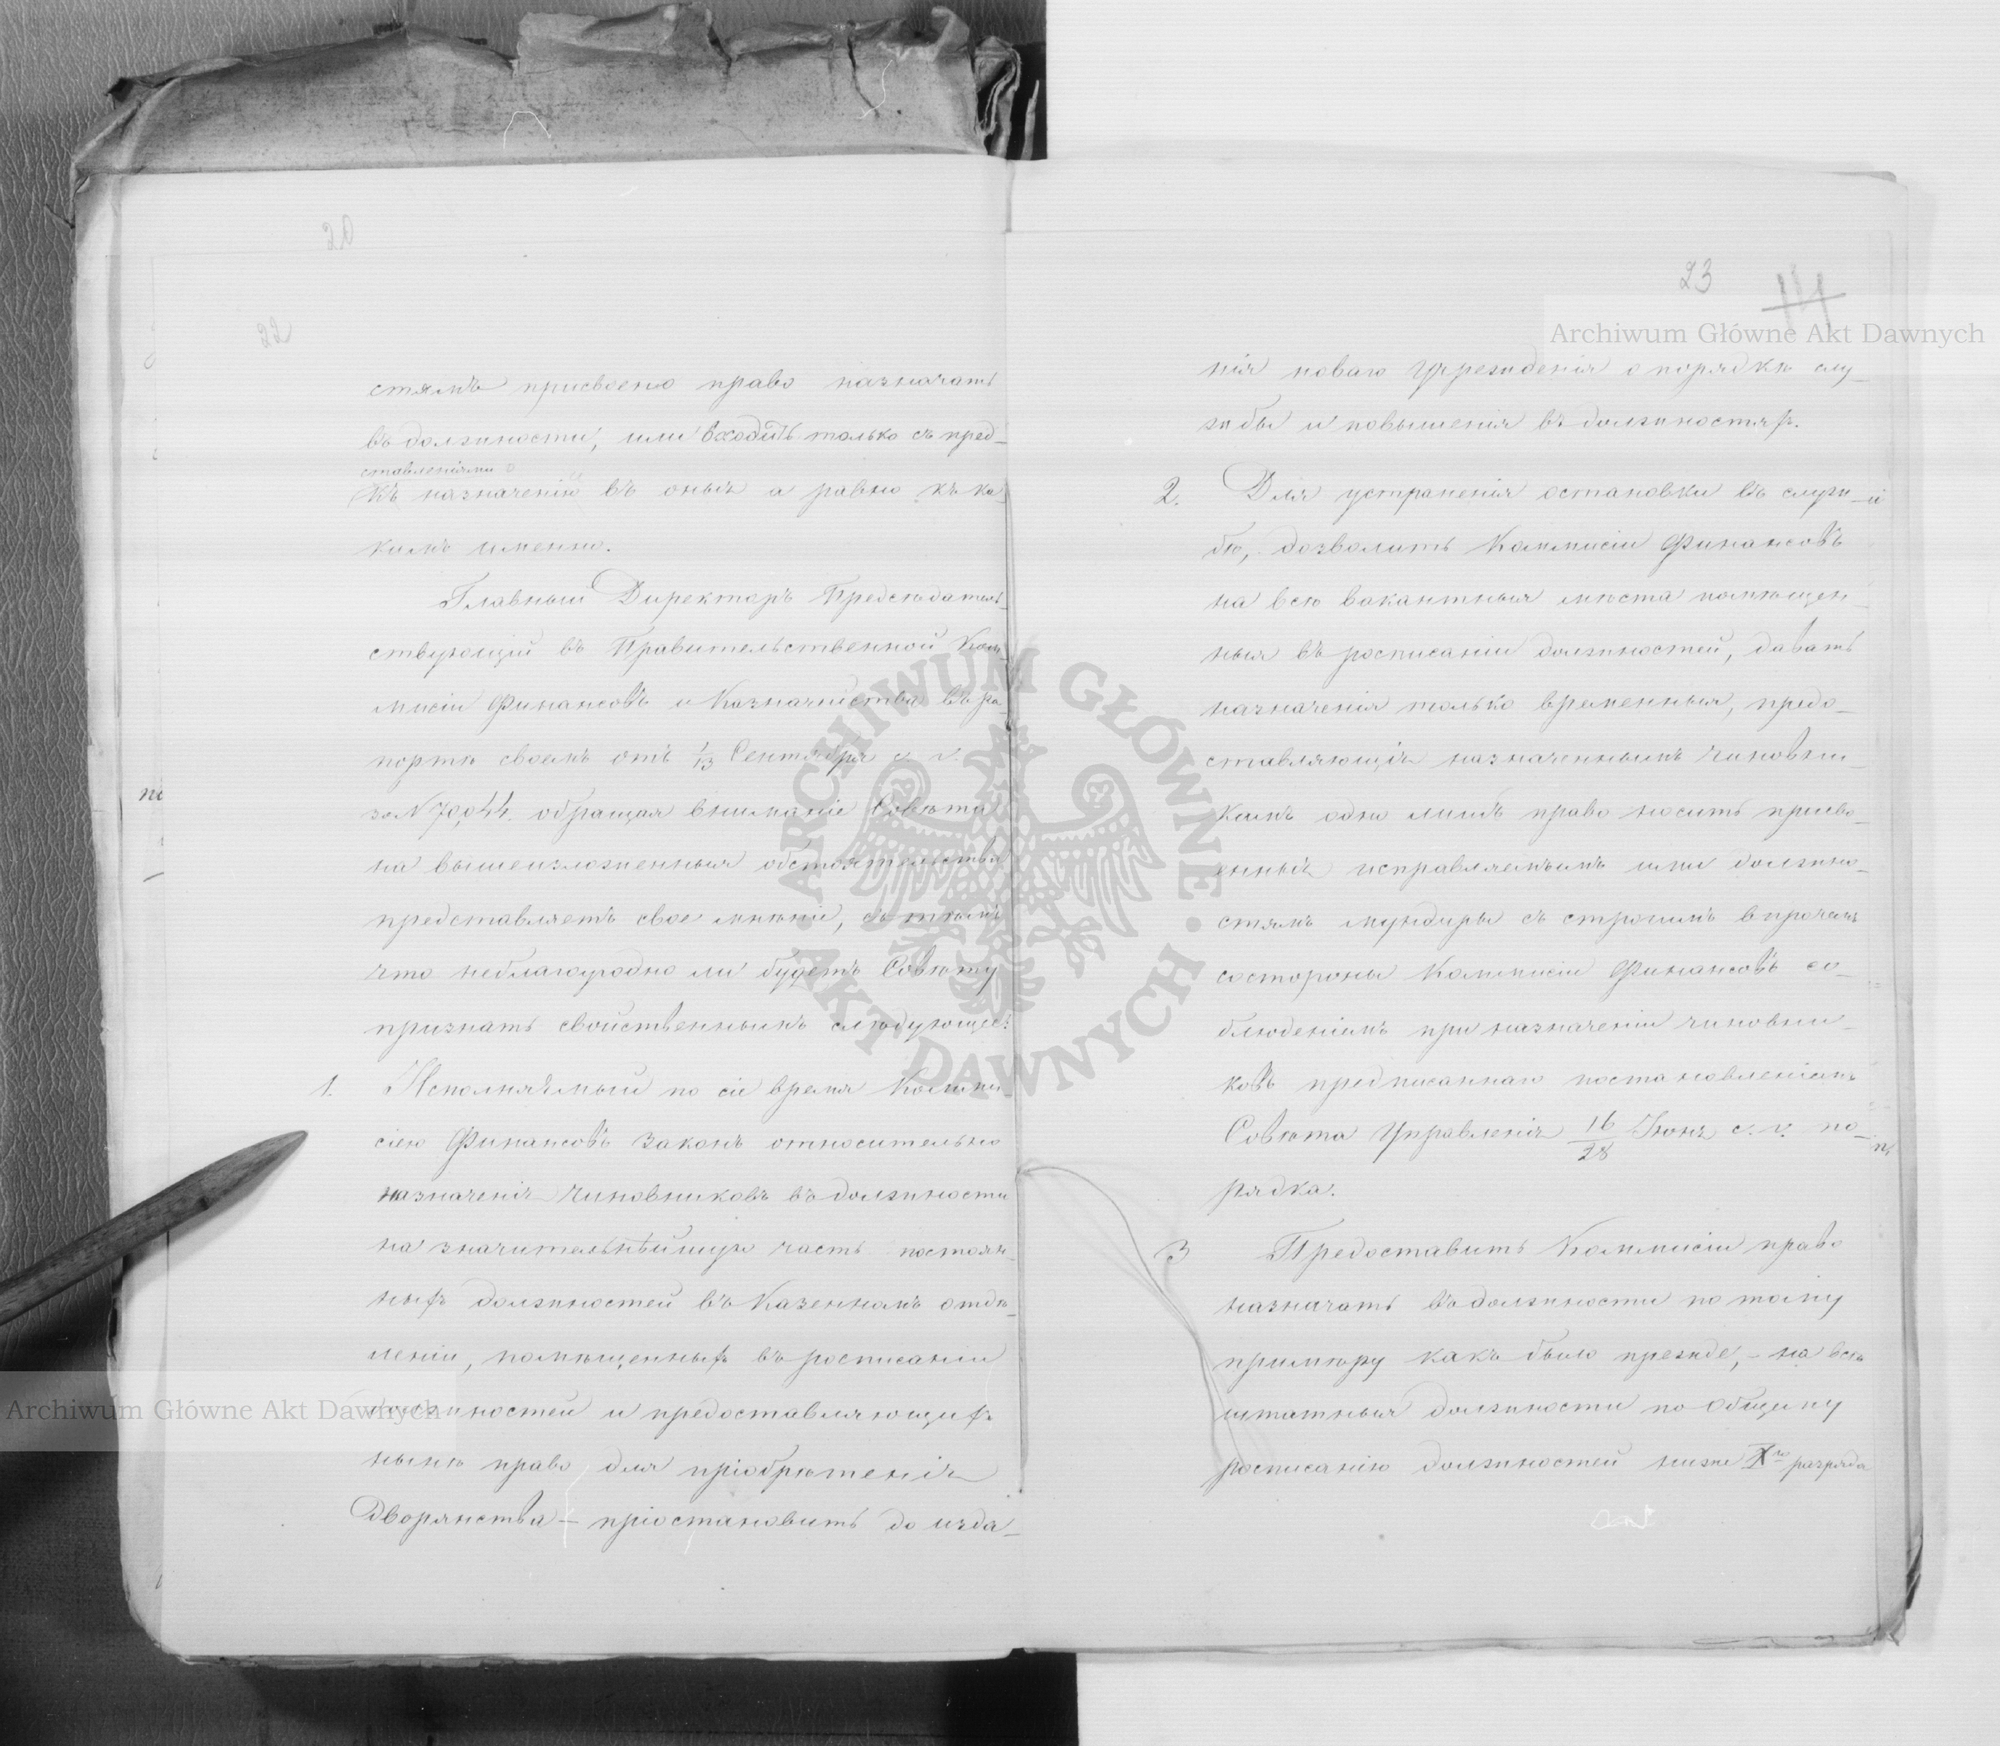 20
22
стямъ присвоено право назначать
въ должности, или входить только съ пред-
ставленіями о
къ назначенію въ оныя а равно къ ка-
кимъ именно.
Главный Директоръ Предсѣдатель-
ствующій въ Правительственной Ком-
мисіи Финансовъ и Казначейства въ ра-
портѣ своемъ отъ 1/13 Сентября с. г.
за N 70,044. обращая вниманіе Совѣта
на вышеизложенныя обстоятельства
представляетъ свое мнѣніе, съ тѣмъ
что неблагоугодно ли будетъ Совѣту
признать свойственнымъ слѣдующее:
1. Исполняемый по сіе время Комми-
сіею Финансовъ законъ относительно
назначенія чиновниковъ въ должности
на значительнѣйшую часть постоян-
ныхъ должностей въ Казенномъ отдѣ-
леніи, помѣщенныхъ въ росписаніи
должностей и предоставляющихъ
нынѣ право для пріобрѣтенія
Дворянства – пріостановить до изда-
23
14
нія новаго Учрежденія о порядкѣ слу-
жбы и повышенія въ должностяхъ.
2. Для устраненія остановки въ служ-
бѣ, дозволить Коммисіи Финансовъ
на всѣ вакантныя мѣста помѣщен-
ныя въ росписаніи должностей, давать
назначенія только временныя, предо-
ставляющія назначеннымъ чиновни-
камъ одно лишь право носить присво-
енные исправляемымъ ими должно-
стямъ мундиры съ строгимъ впрочемъ
состороны Коммисіи Финансовъ со-
блюденіемъ при назначеніи чиновни-
ковъ предписаннаго постановленіемъ
Совѣта Управленія 16/28 Іюня с. г. по-
рядка.
3 Предоставить Коммисіи право
назначать въ должности по тому
примѣру какъ было прежде, – на всѣ
штатныя должности по общему
росписанію должностей ниже Xго разряда
Archiwum Główne Akt Dawnych
Archiwum Główne Akt Dawnych
ARCHIWUM GŁÓWNE · AKT DAWNYCH ·